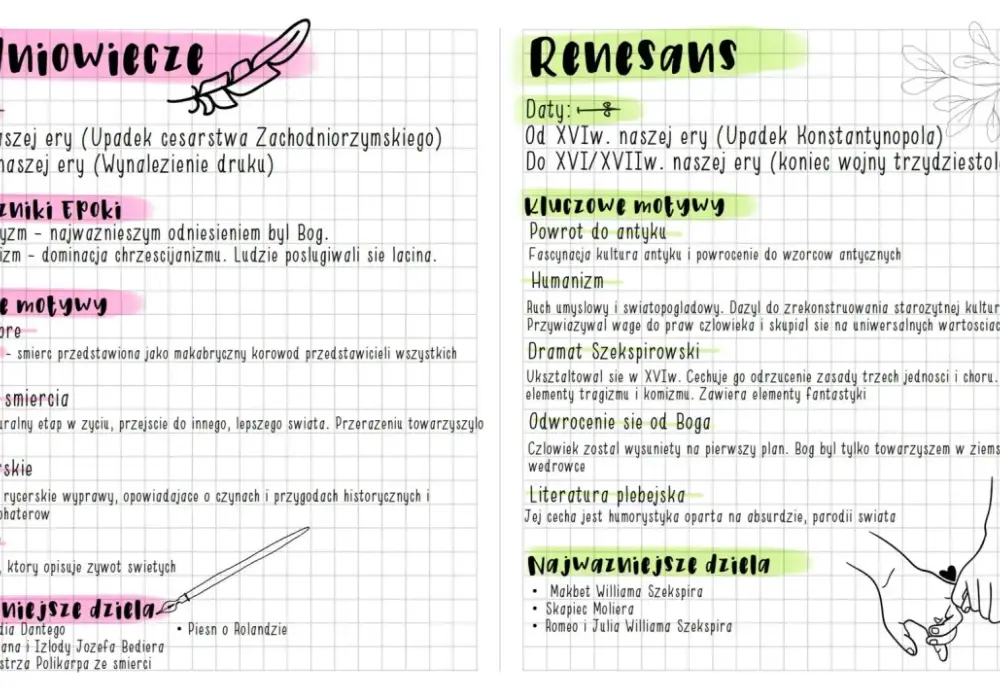 niowiecze
aszej ery (Upadek cesarstwa Zachodniorzymskiego)
naszej ery (Wynalezienie druku)
zniki Epoki
yzm - najwaznieszym odniesieniem byl Bog.
izm - dominacja chrzescijanizmu. Ludzie poslugiwali sie lacina.
e motywy
bre
- smierc przedstawiona jako makabryczny korowod przedstawicieli wszystkich
smiercia
uralny etap w zyciu, przejscie do innego, lepszego swiata. Przerazeniu towarzyszylo
rskie
rycerskie wyprawy, opowiadajace o czynach i przygodach historycznych i
ohaterow
, ktory opisuje zywot swietych
niejsze dziela
dia Dantego
• Piesn o Rolandzie
ana i Izlody Jozefa Bediera
strza Polikarpa ze smierci
Renesans
Daty:
Od XVIw. naszej ery (Upadek Konstantynopola)
Do XVI/XVIIw. naszej ery (koniec wojny trzydziestol
Kluczowe motywy
Powrot do antyku
Fascynacja kultura antyku i powrocenie do wzorcow antycznych
Humanizm
Ruch umyslowy i swiatopogladowy. Dazyl do zrekonstruowania starozytnej kultur
Przywiazywal wage do praw czlowieka i skupial sie na uniwersalnych wartosciac
Dramat Szekspirowski
Uksztaltowal sie w XVIw. Cechuje go odrzucenie zasady trzech jednosci i choru.
elementy tragizmu i komizmu. Zawiera elementy fantastyki
Odwrocenie sie od Boga
Czlowiek zostal wysuniety na pierwszy plan. Bog byl tylko towarzyszem w ziems
wedrowce
Literatura plebejska
Jej cecha jest humorystyka oparta na absurdzie, parodii swiata
Najwazniejsze dziela
• Makbet Williama Szekspira
• Skapiec Moliera
• Romeo i Julia Williama Szekspira